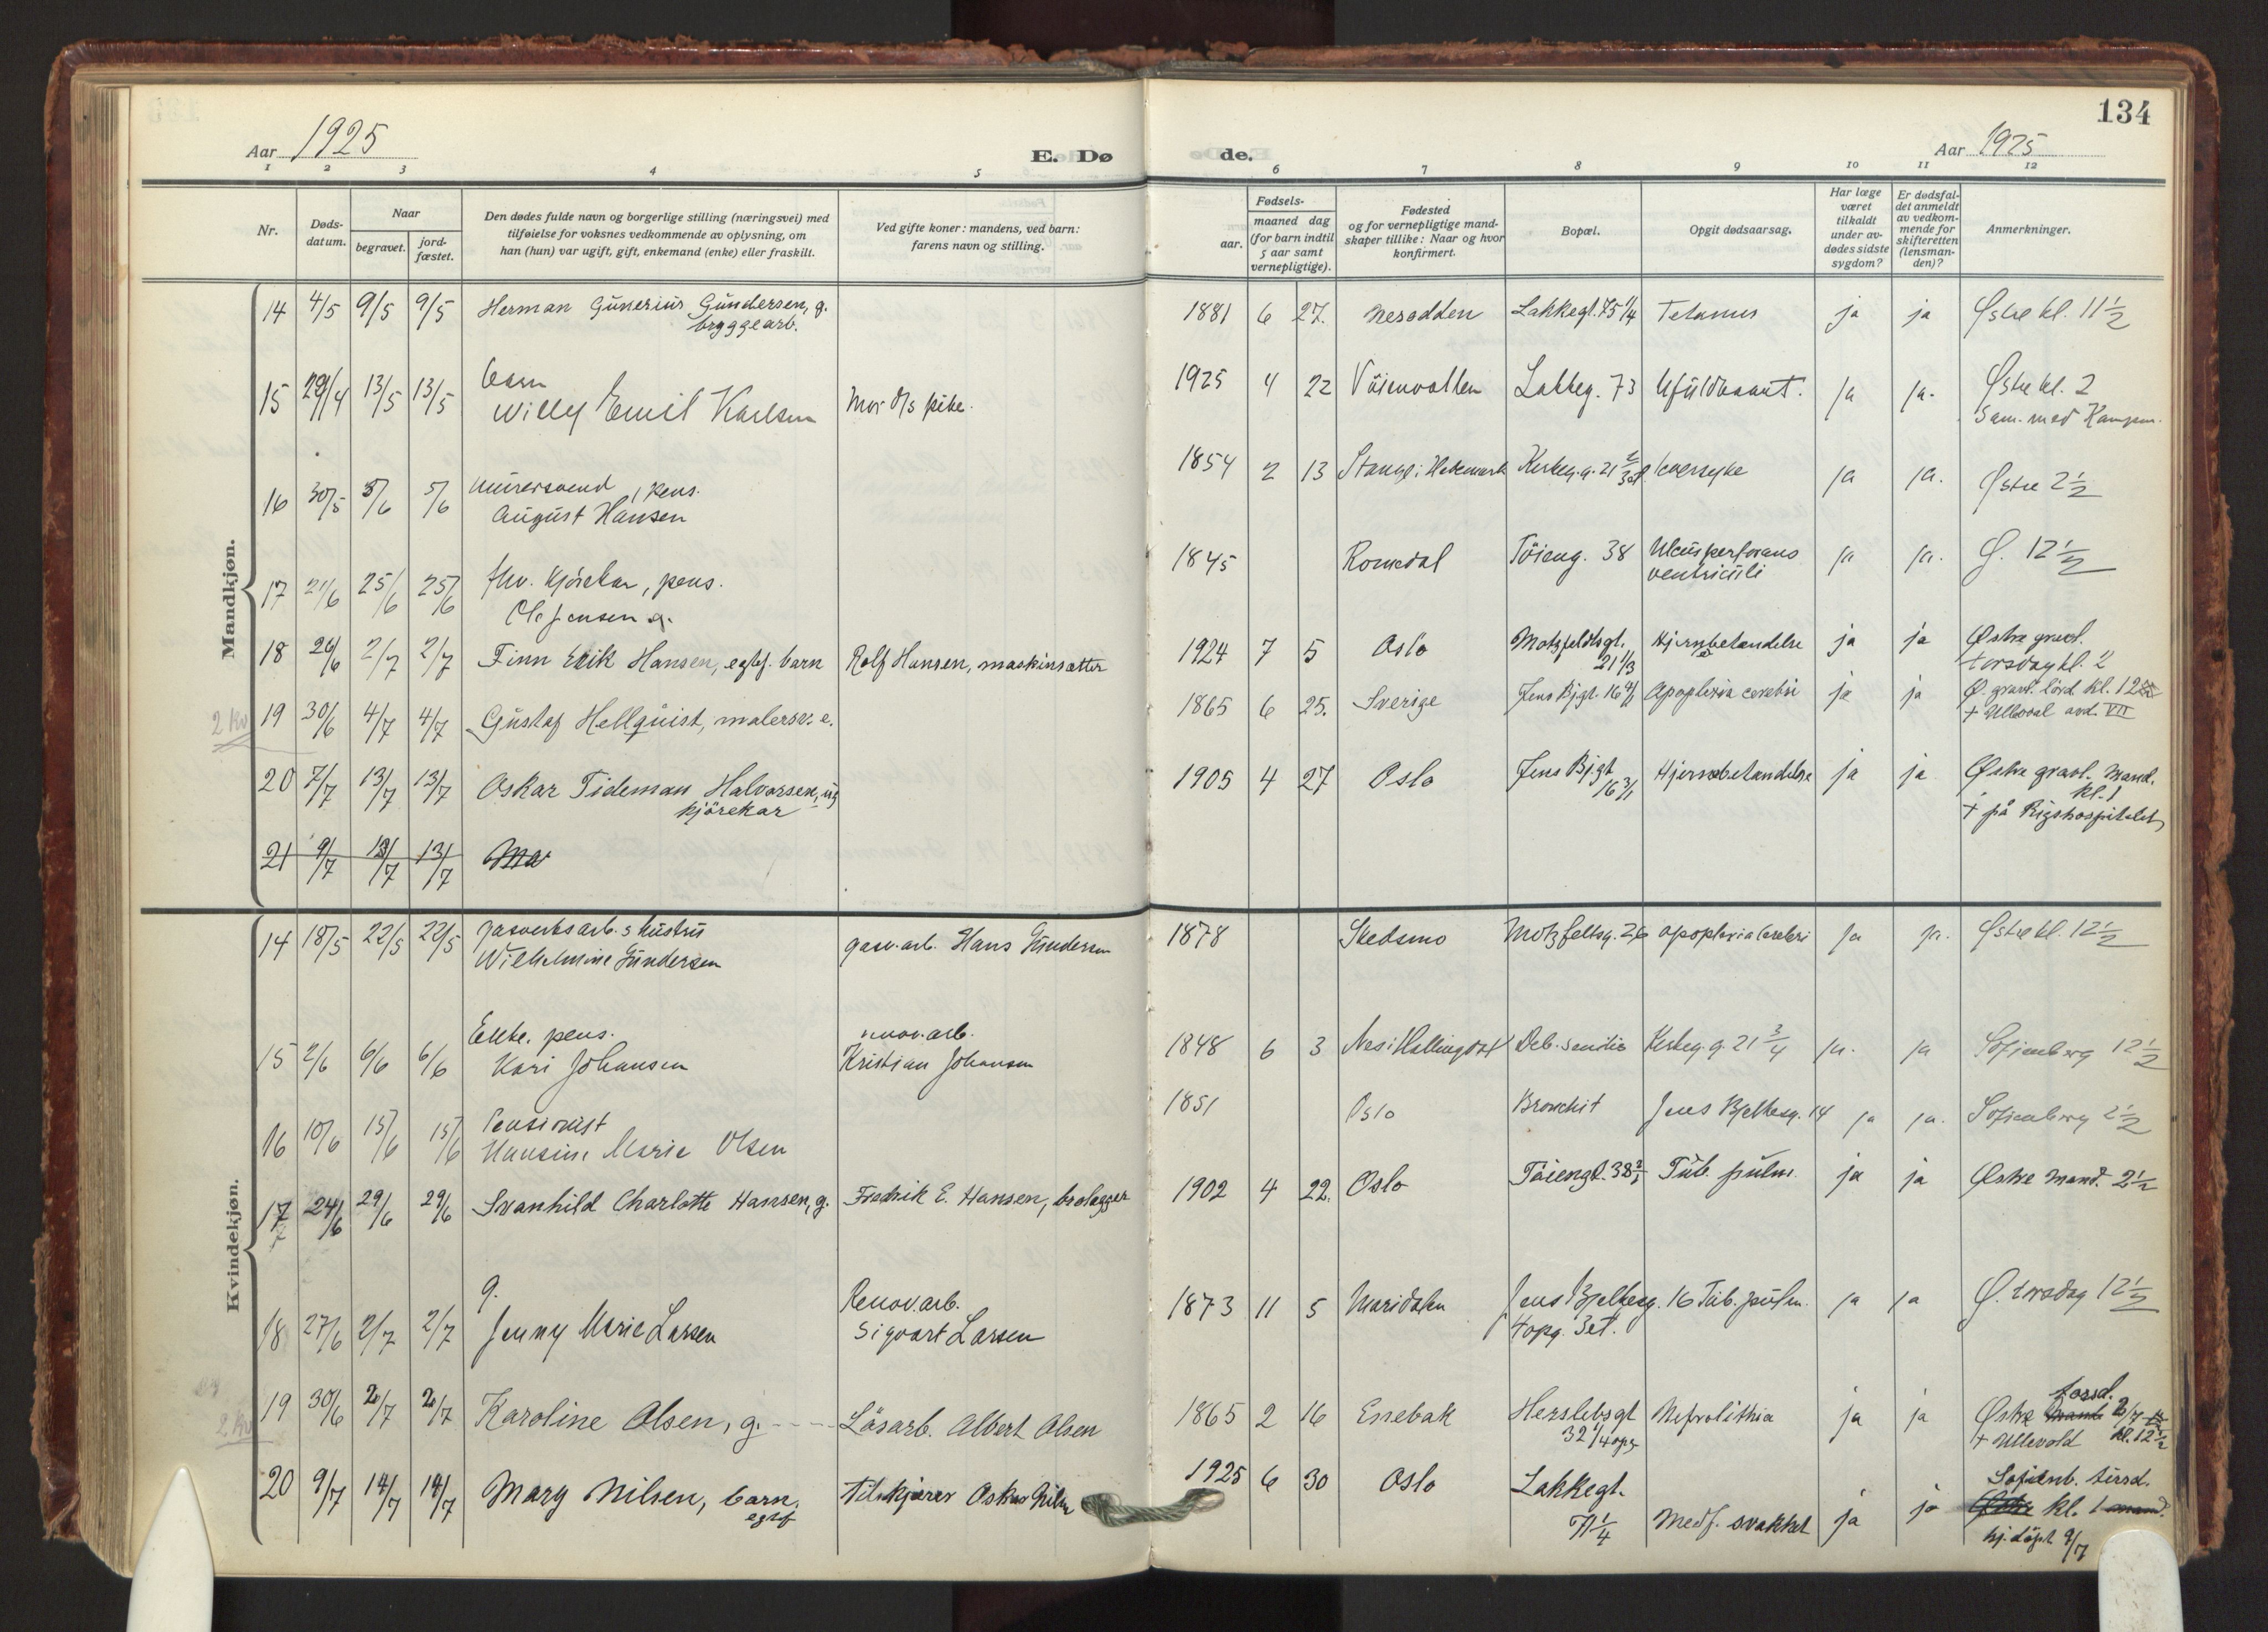 134
Aar 1925
E. Dø
de.
Aar 1925
1 2 3 4 5 6 7 8 9 10 11 12
Nr.
Døds-
datum.
Naar
begravet.
jord-
fæstet.
Den dødes fulde navn og borgerlige stilling (næringsvei) med
tilføielse for voksnes vedkommende av oplysning, om
han (hun) var ugift, gift, enkemand (enke) eller fraskilt.
Ved gifte koner: mandens, ved barn:
farens navn og stilling.
Fødsels-
aar.
maaned dag
(for barn indtil
5 aar samt
vernepligtige).
Fødested
og for vernepligtige mand-
skaper tillike: Naar og hvor
konfirmert.
Bopæl.
Opgit dødsaarsag.
Har læge
været
tilkaldt
under av-
dødes sidste
sygdom?
Er dødsfal-
det anmeldt
av vedkom-
mende for
skifteretten
(lensman-
den)?
Anmerkninger.
Mandkjøn.
14 4/5 9/5 9/5 Herman Gunerius Gundersen, g. 1881 6 27. Nesodden Lakkegt. 75 1/4 Tetanus ja ja Østre kl. 11 1/2
bryggearb.
15 29/4 13/5 13/5 barn 1925 4 22 Lakkeg. 73 Ufuldbaaret. ja ja. Østre kl. 2
Willy Emil Karlsen Mor d/s pike. Sam. med
16 30/5 5/6 5/6 murersvend, pens. 1854 2 13 Stange i Hedemark Kirkeg. g. 21 leversyke ja ja. Østre 2 1/2
August Hansen
17 21/6 25/6 25/6 fhv. kjørekar, pens. 1845 Romedal Töieng. 38 Ulcus perforans ja ja. Ø. 12 1/2
Ole Jensen g. ventriculi
18 26/6 2/7 2/7 Finn Erik Hansen, egtef. barn Rolf Hansen, maskinsætter 1924 7 5 Oslo Motzfeldtsgt. Hjernebetændelse ja ja Østre gravl.
21 1/3 torsdag kl. 2
2 kv 19 30/6 4/7 4/7 Gustaf Hellquist, malersv. e. 1865 6 25. Sverige Jens Bjgt. 16 4/1 Apoplexia cerebri ja ja Ø. gravl. lörd. kl. 12
+ Ullevaal avd. VII
20 7/7 13/7 13/7 Oskar Tideman Halvorsen, ug 1905 4 27 Oslo Jens Bjgt Hjernebetændelse ja ja Østre gravl. Mand.
kjörekar 16 3/1 kl. 1
+ på Rigshospitalet
21 9/7 13/7 13/7 Ma
Kvindekjøn.
14 18/5 22/5 22/5 gasverksarb.s hustru gasv.arb. Hans Gundersen 1878 Skedsmo Motzfeltsg. 26 apoplexia cerebri ja ja. Østre kl. 12 1/2
Wilhelmine Gundersen
15 2/6 6/6 6/6 Enke. pens. renov.arb. 1848 6 3 Nes i Hallingdal Deb. senilis Kirkeg. g. 21 3/4 ja. ja Sofienberg 12 1/2
Kari Johansen Kristian Johansen
16 10/6 15/6 15/6 Pensionist 1851 Oslo Bronchit Jens Bjelkesg. 14 ja ja. Sofienberg 2 1/2
Hansine Marie Olsen
17 24/6 29/6 29/6 Svanhild Charlotte Hansen, g. Fredrik E. Hansen, brolægger 1902 4 22. Oslo Töiengt. 38 Tub. pulm. ja ja Østre mand. 2 1/2
18 27/6 2/7 2/7 g. Renov.arb. 1873 11 5 Maridalen Jens Bjelkesg. 16 Tub. pulm. ja ja Ø. torsdag 12 1/2
Jenny Marie Larsen Sigvart Larsen 4 opg. 3 et.
2 kv 19 30/6 2/7 2/7 Karoline Olsen, g. Läsarb. Albert Olsen 1865 2 16 Enebak Herslebsgt Nefrolithia ja ja torsd.
Østre mand 2/7
32 1/4 opg + Ullevold kl. 12 1/2
20 9/7 14/7 14/7 Mary Nilsen, barn. Oskar Nilsen 1925 6 30 Oslo Lakkegt. Sofienb. tirsd.
egtef 71 1/4 Medf. svakhet ja ja Østre kl. 1 mand.
hj.döpt 9/7